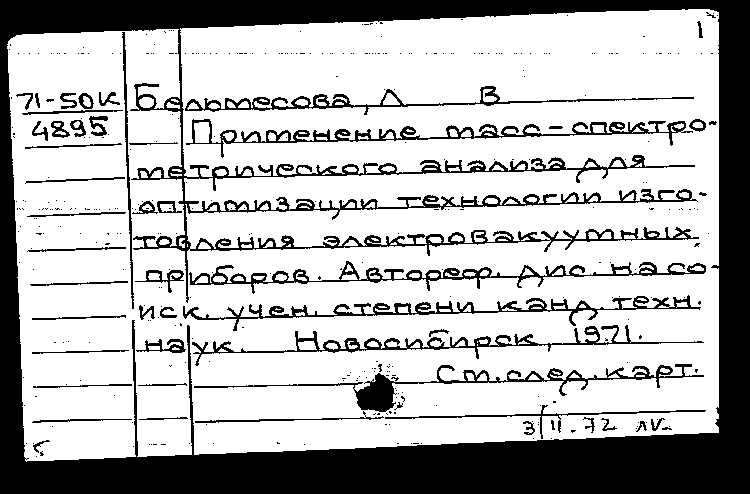 1
71-50К Бельтесова, Л В
4895 Применение масс-спектро-
метрического анализа для
оптимизации технологии изго-
товления электровакуумных
приборов. Автореф. дис. на со-
иск. учен. степени канд. техн.
наук. Новосибирск, 1971.
См. след. карт.
3/II-72